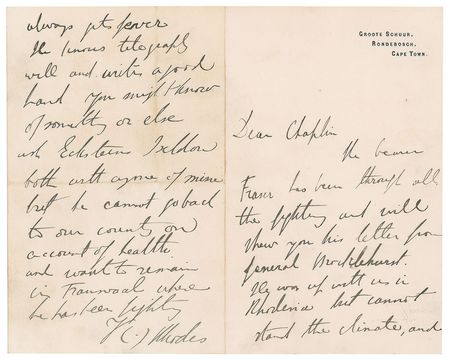 GROOTE SCHUUR.
RONDEBOSCH.
CAPE TOWN.
Dear Chaplin
The bearer
Fraser has been through all
the fighting and will
shew you his letter from
General Brocklehurst.
He was up with us in
Rhodesia but cannot
stand the climate, and
always gets fever
He knows telegraphy
well and writes a good
hand you might know
of something or else
ask Eckstein I seldom
both with anyone of mine
but he cannot go back
to our country on
account of health
and want to remain
in Transvaal where
he has been fighting
Yr C J Rhodes